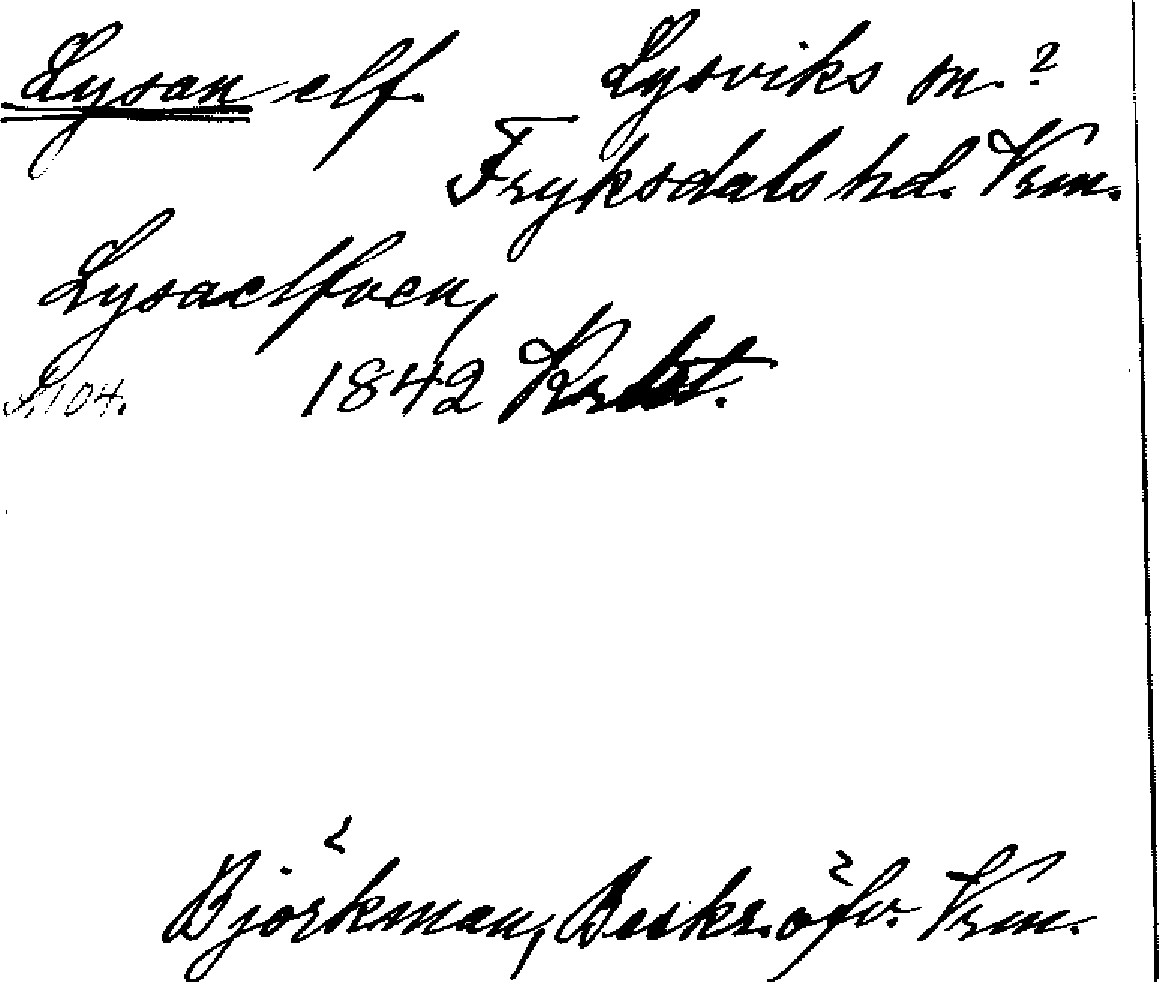 Lysan elf. Lysviks sn.?
Fryksdals hd. Vrm.
Lysaelfven,
S. 104. 1842
Björkman, Beskr. öfv. Vrm.